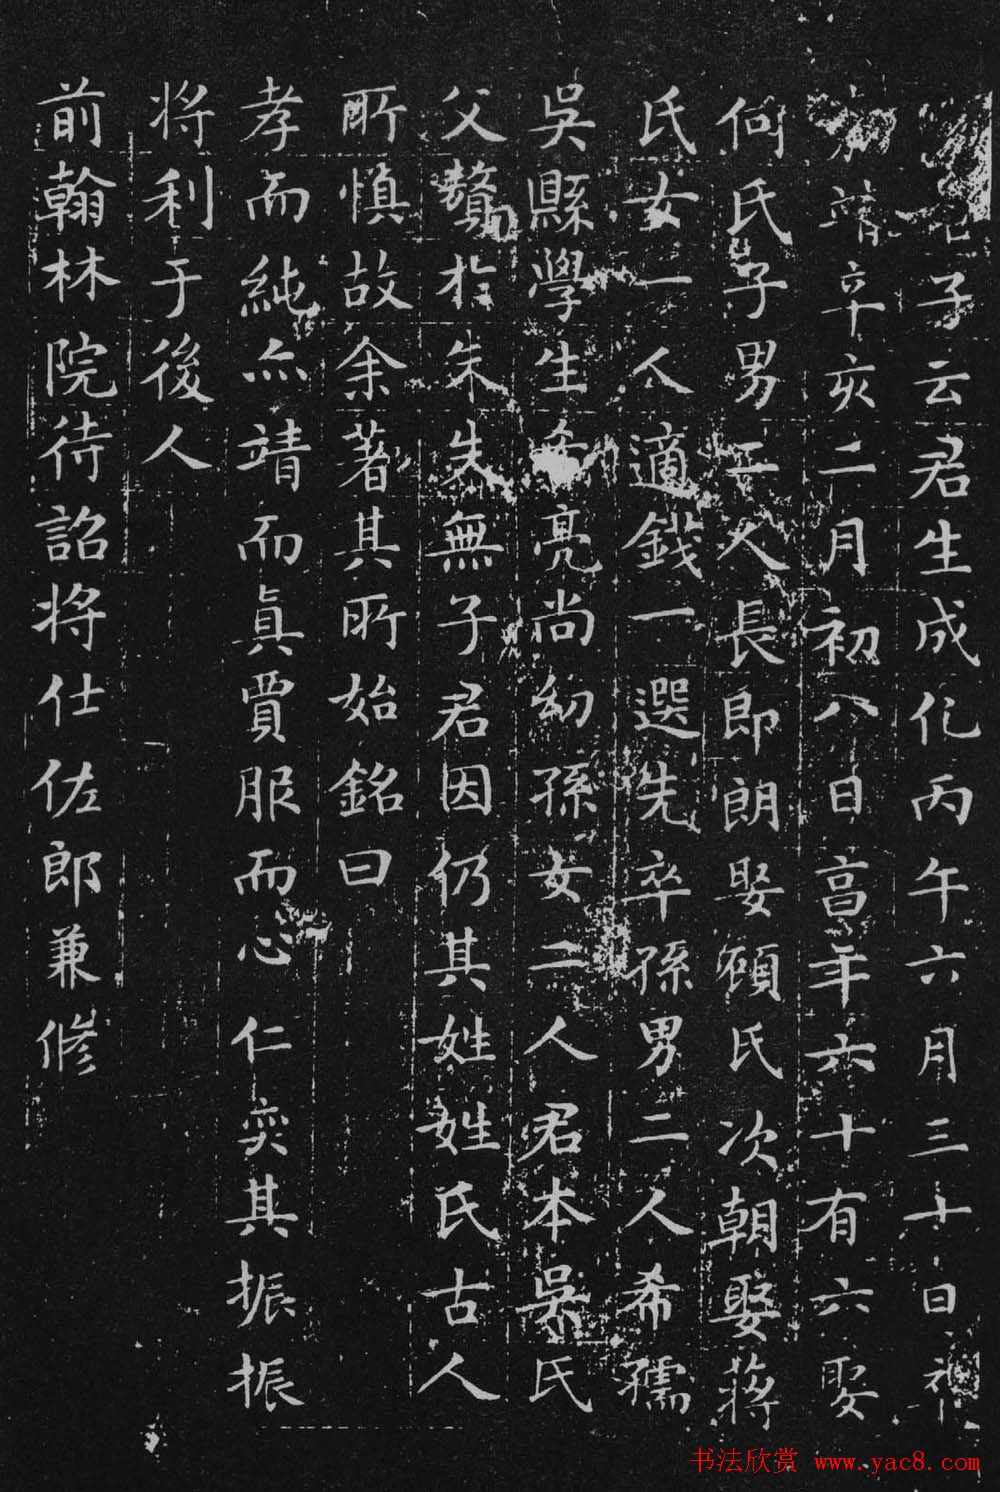 子云君生成化丙午六月三十日卒
嘉靖辛亥二月初八日享年六十有六娶
何氏子男二人長即朗娶顧氏次朝娶蔣
氏女一人適錢一選先卒孫男二人希孺
吳縣學生希亮尚幼孫女二人君本吳氏
父贅於朱朱無子君因仍其姓姓氏古人
所慎故余著其所始銘曰
孝而純亦靖而眞賈服而心仁奕其振振
将利于後人
前翰林院待詔将仕佐郎兼修
书法欣赏 www.yac8.com